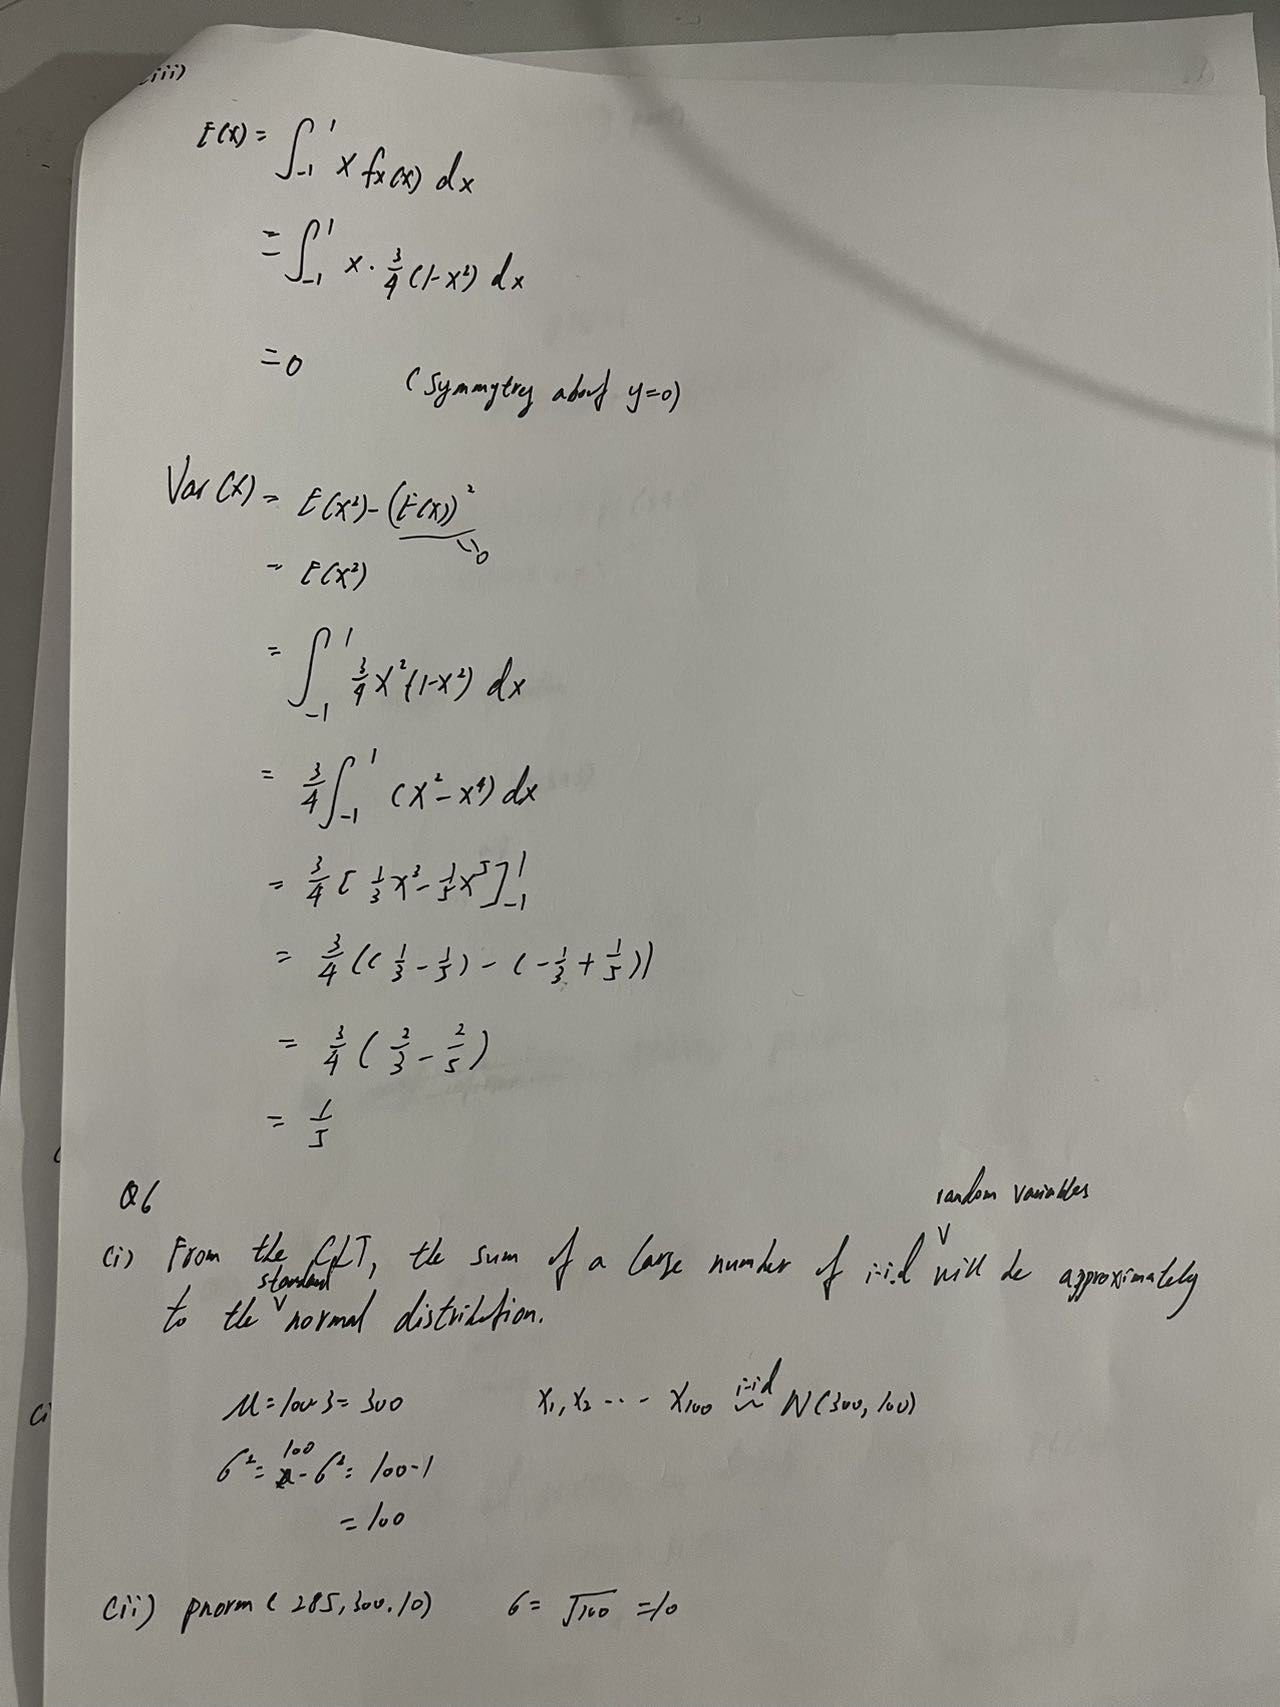 (iii)
E(X) = ∫_{-1}^{1} x f_X(x) dx
= ∫_{-1}^{1} x · 3/4 (1-x²) dx
= 0 (Symmytrey about y=0)
Var(X) = E(X²) - (E(X))² → 0
= E(X²)
= ∫_{-1}^{1} 3/4 x² (1-x²) dx
= 3/4 ∫_{-1}^{1} (x² - x⁴) dx
= 3/4 [1/3 x³ - 1/5 x⁵]_{-1}^{1}
= 3/4 ((1/3 - 1/5) - (-1/3 + 1/5))
= 3/4 (2/3 - 2/5)
= 1/5
Q6
(i) From the CLT, the sum of a large number of i.i.d random variables will be approximately
to the standard normal distribution.
μ = 100·3 = 300 X₁, X₂ ... X₁₀₀ i.i.d ~ N(300, 100)
σ² = 100·σ² = 100·1
= 100
(ii) pnorm(285, 300, 10) σ = √100 = 10